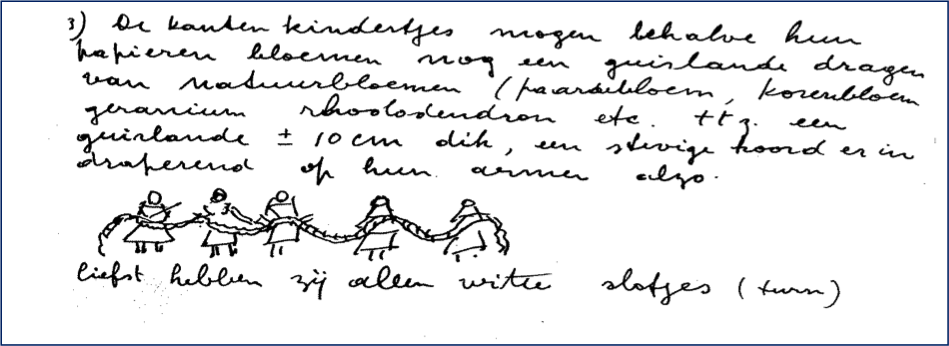 3) De kanten kindertjes mogen behalve hun
papieren bloemen nog een guirlande dragen
van natuurbloemen (paardebloem, korenbloem
geranium rhododendron etc. ttz. een
guirlande ± 10 cm dik, een stevige koord er in
draperend op hun armen alzo.
liefst hebben zij allen witte slofjes (turn)